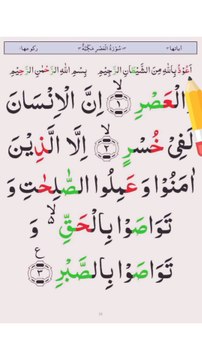 اٰیاتها ٣ سُوْرَةُ الْعَصْرِ مَكِّيَّةٌ رکوعها ١
اَعُوْذُ بِاللّٰهِ مِنَ الشَّيْطَانِ الرَّجِيْمِ بِسْمِ اللّٰهِ الرَّحْمٰنِ الرَّحِيْمِ
وَالْعَصْرِ ۙ﴿١﴾ اِنَّ الْاِنْسَانَ
لَفِیْ خُسْرٍ ۙ﴿٢﴾ اِلَّا الَّذِيْنَ
اٰمَنُوْا وَ عَمِلُوا الصّٰلِحٰتِ وَ
تَوَاصَوْا بِالْحَقِّ ۙ وَ
تَوَاصَوْا بِالصَّبْرِ ﴿٣﴾ ع